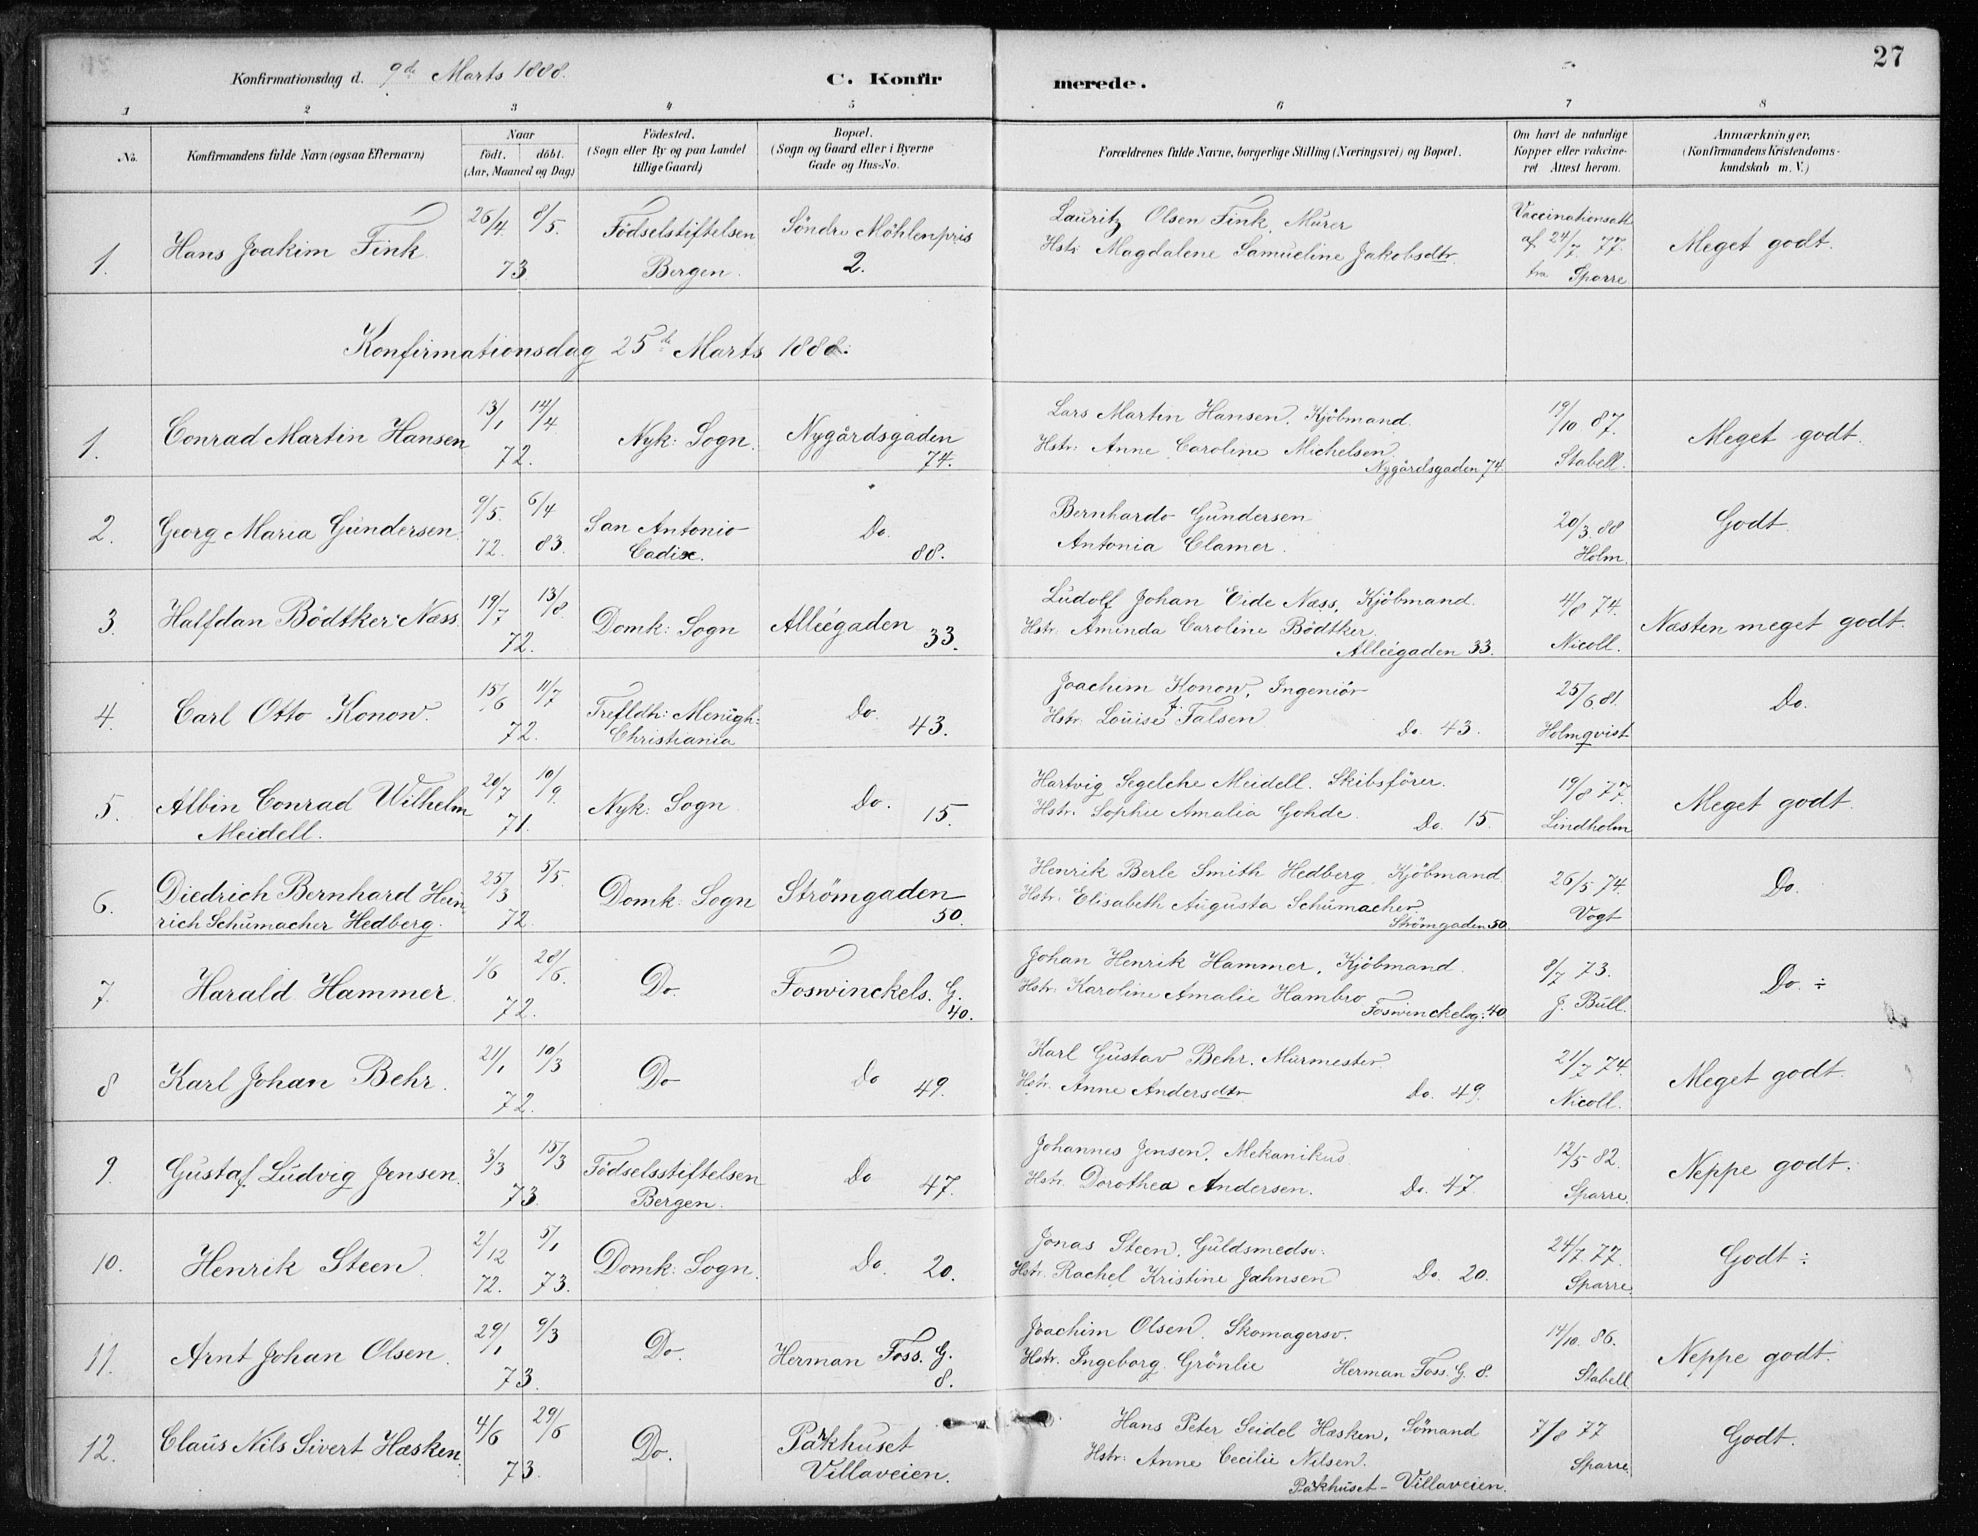 27
Konfirmationsdag d. 9de Marts 1888.
C. Konfir merede.
1 2 3 4 5 6 7 8
No.
Konfirmandens fulde Navn (ogsaa Efternavn)
Naar
født. døbt.
(Aar, Maaned og Dag)
Fødested.
(Sogn eller By og paa Landet
tillige Gaard)
Bopæl.
(Sogn og Gaard eller i Byerne
Gade og Hus-No.
Forældrenes fulde Navne, borgerlige Stilling (Næringsvei) og Bopæl.
Om havt de naturlige
Kopper eller vakcine-
ret Attest herom.
Anmærkninger.
(Konfirmandens Kristendoms-
kundskab m. V.)
1. Hans Joakim Fink 26/4 8/5. 73
Födselstiftelsen
Bergen.
Söndre Möhlenpris
2.
Lauritz Olsen Fink, Murer
Hstr. Magdalene Samueline Jakobsdtr.
Vaccinationsatt
af 24/7 77.
fra Sparre
Meget godt.
Konfirmationsdag 25de Marts 1888.
1. Conrad Martin Hansen 13/1 14/4 72.
Nyk: Sogn.
Nygårdsgaden
74.
Lars Martin Hansen, Kjöbmand.
Hstr. Anne Caroline Michelsen
Nygårdsgaden 74.
19/10 87.
Stabell.
Meget godt.
2. Georg Maria Gundersen 9/5. 72. 6/4 83.
San Antonio
Cadix.
Do.
88.
Bernhardo Gundersen
Antonia Clamer.
20/3. 88
Holm.
Godt.
3. Halfdan Bödtker Næss. 19/7 13/8 72.
Domk: Sogn
Alléegaden
33.
Ludolf Johan Eide Næss, Kjöbmand.
Hstr. Aminda Caroline Bödtker
Alléegaden 33.
4/8 74.
Nicoll.
Næsten meget godt.
4. Carl Otto Konow. 15/6 11/7 72.
Trefldh: Menigh:
Christiania
Do.
43.
Joachim Konow, Ingeniör
Hstr. Louise F. Falsen
Do. 43.
25/6 81.
Holmqvist
Do.
5. Albin Conrad Wilhelm
Meidell. 20/7 10/9. 71.
Nyk: Sogn.
Do.
15.
Hartvig Segelche Meidell. Skibsförer.
Hstr. Sophie Amalia Gohde.
Do. 15.
19/8 77.
Lindholm
Meget godt.
6. Diedrich Bernhard Hein
rich Schumacher Hedberg. 25/3 5/5. 72.
Domk: Sogn
Strömgaden
50.
Henrik Berle Smith Hedberg, Kjöbmand.
Hstr. Elisabeth Augusta Schumacher.
Strömgaden 50.
26/5 74.
Vogt
Do.
7. Harald Hammer. 1/6 28/6. 72.
Do.
Foswinckels. G.
40.
Johan Henrik Hammer, Kjöbmand.
Hstr. Karoline Amalie Hambro
Foswinckelsg: 40
8/7 73.
J. Bull.
Do. ÷
8 Karl Johan Behr. 21/1 10/3 72.
Do
Do
49.
Karl Gustav Behr, Murmester.
Hstr. Anne Andersdtr.
Do. 49.
21/7 74.
Nicoll.
Meget godt.
9. Gustaf Ludvig Jensen. 3/3 15/3 73.
Födselsstiftelsen
Bergen.
Do
47.
Johannes Jensen, Mekanikus
Hstr. Dorothea Andersen.
Do. 47.
12/5 82.
Sparre.
Neppe godt.
10. Henrik Steen 2/12 72. 5/1 73.
Domk: Sogn.
Do.
20.
Jonas Steen, Guldsmedsv:
Hstr. Rachel Kristine Jahnsen
Do. 20.
24/7 77.
Sparre
Godt ÷
11. Arnt Johan Olsen. 29/1 9/3 73.
Do.
Herman Foss. G.
8.
Joachim Olsen, Skomagersv.
Hstr. Ingeborg Grönlie
Herman Foss. G. 8.
14/10. 86.
Stabell
Neppe godt.
12. Claus Nils Sivert Hæsken. 4/6 29/6 73.
Do.
Pakhuset
Villaveien.
Hans Peter Seidel Hæsken, Sömand
Hstr. Anne Cecilie Nilsen.
Pakhuset - Villaveien.
7/8 77
Sparre.
Godt.